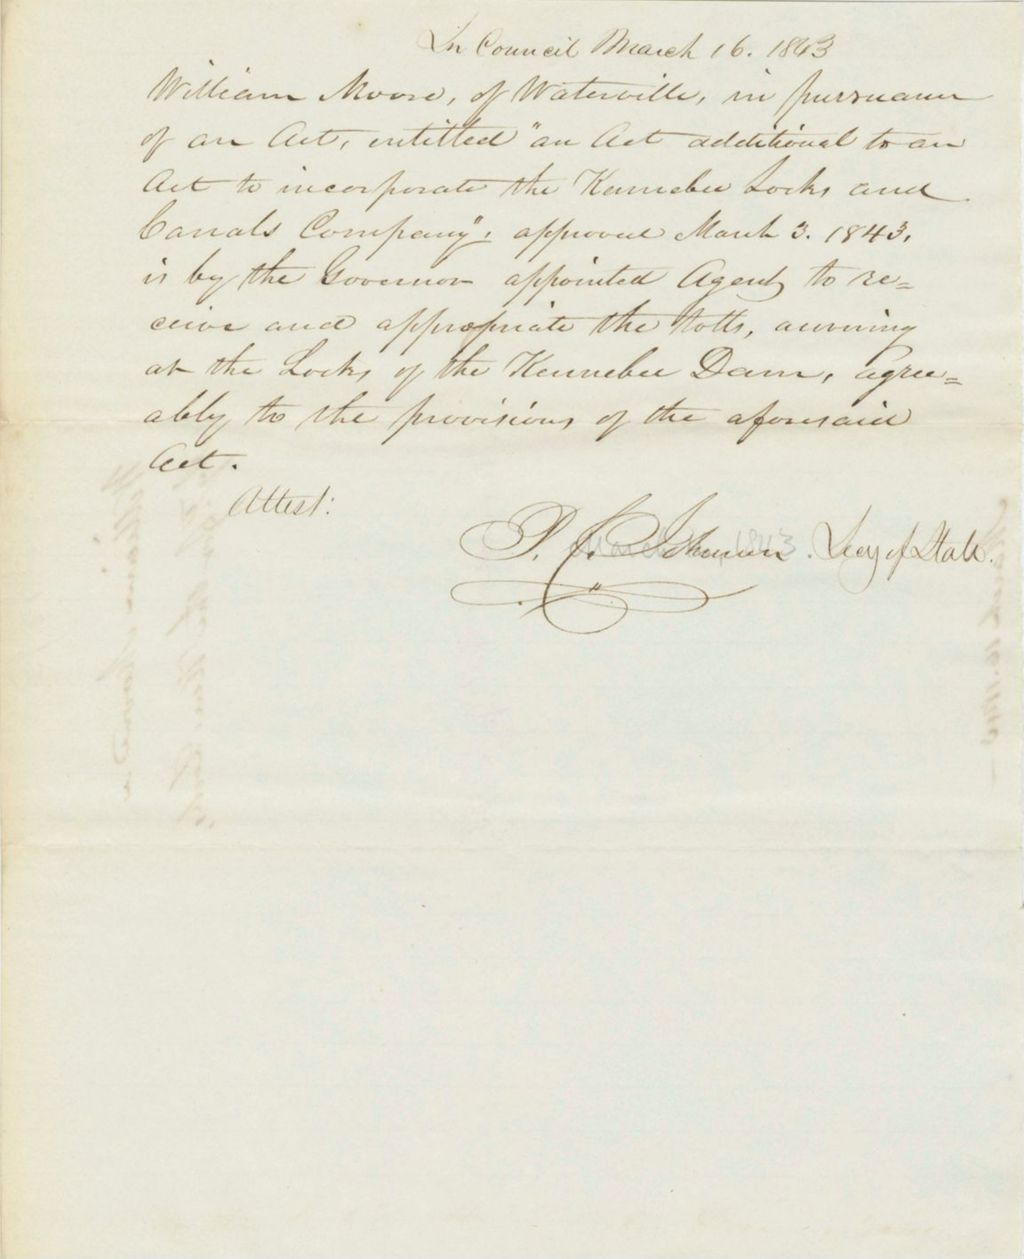 In Council March 16. 1843
William Moore, of Waterville, in pursuance
of an Act, entitled "an Act additional to an
Act to incorporate the Kennebec Locks and
Canals Company", approved March 3. 1843,
is by the Governor appointed Agent, to re=
ceive and appropriate the tolls, accruing
at the Locks of the Kennebec Dam, agree=
ably to the provisions of the aforesaid
Act.
Attest:
P. C. Johnson. Secy of State.
March 1843